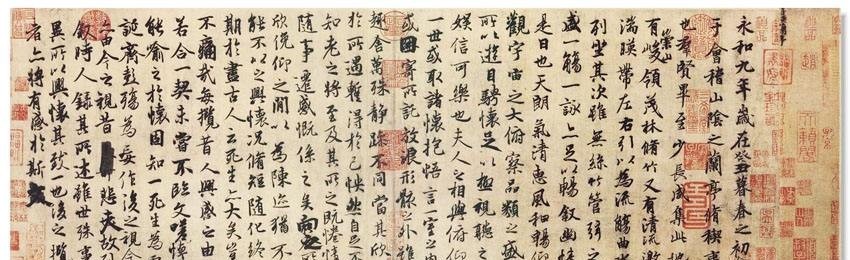 永和九年歲在癸丑暮春之初
于會稽山陰之蘭亭脩稧事
也羣賢畢至少長咸集此地
有崇山峻領茂林脩竹又有清流激
湍暎帶左右引以為流觴曲水
列坐其次雖無絲竹管弦之
盛一觴一詠亦足以暢敘幽情
是日也天朗氣清惠風和暢仰
觀宇宙之大俯察品類之盛
所以遊目騁懷足以極視聽之
娛信可樂也夫人之相與俯仰
一世或取諸懷抱悟言一室之內
或因寄所託放浪形骸之外雖
趣舍萬殊靜躁不同當其欣
於所遇蹔得於己怏然自足不
知老之將至及其所之既惓情
隨事遷感慨係之矣向之
欣俛仰之閒以為陳迹猶不
能不以之興懷況脩短隨化終
期於盡古人云死生亦大矣豈
不痛哉每攬昔人興感之由
若合一契未嘗不臨文嗟悼
能喻之於懷固知一死生為
誕齊彭殤為妄作後之視今
亦由今之視昔悲夫故列
敘時人錄其所述雖世殊事
異所以興懷其致一也後之攬
者亦將有感於斯文